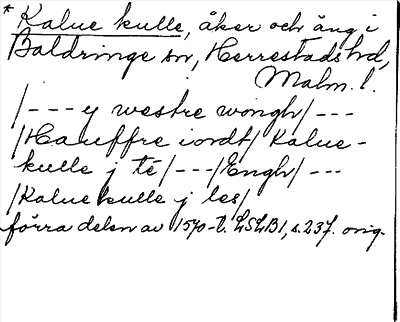 * Kalue kulle, åker och äng i
Baldringe sn, Herrestads hd,
Malm. l.
/--- y westre wongh/---
/Hauffre iordt/ Kalue-
kulle j té/---/Engh/---
/Kalue kulle j les/
förra delen av 1570-t. LSLB1, s. 237. orig.